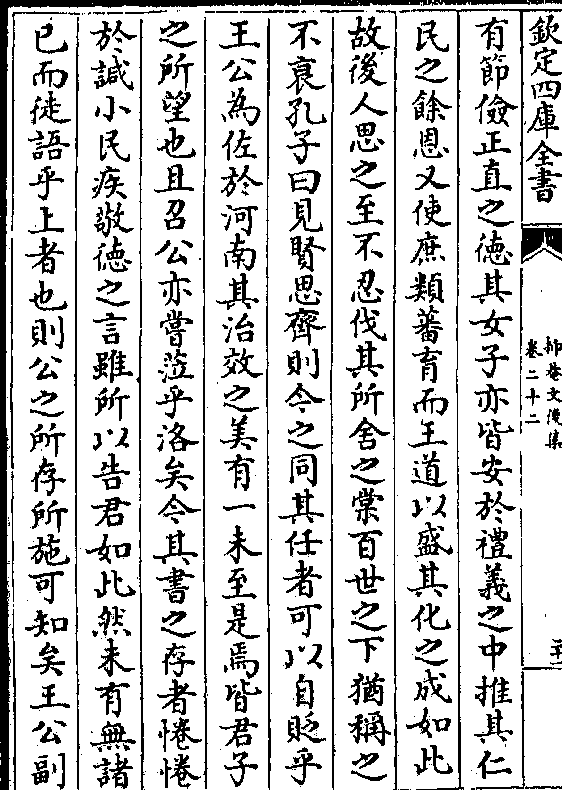 欽定四庫全書
卷二十二
有節儉正直之德其女子亦皆安於禮義之中推其仁
民之餘恩又使庶類蕃育而王道以盛其化之成如此
故後人思之至不忍伐其所舍之棠百世之下猶稱之
不衰孔子曰見賢思齊則今之同其任者可以自貶乎
王公為佐於河南其治效之美有一未至是焉皆君子
之所望也且召公亦嘗蒞乎洛矣今其書之存者惓惓
於諴小民疾敬德之言雖所以告君如此然未有無諸
已而徒語乎上者也則公之所存所施可知矣王公副